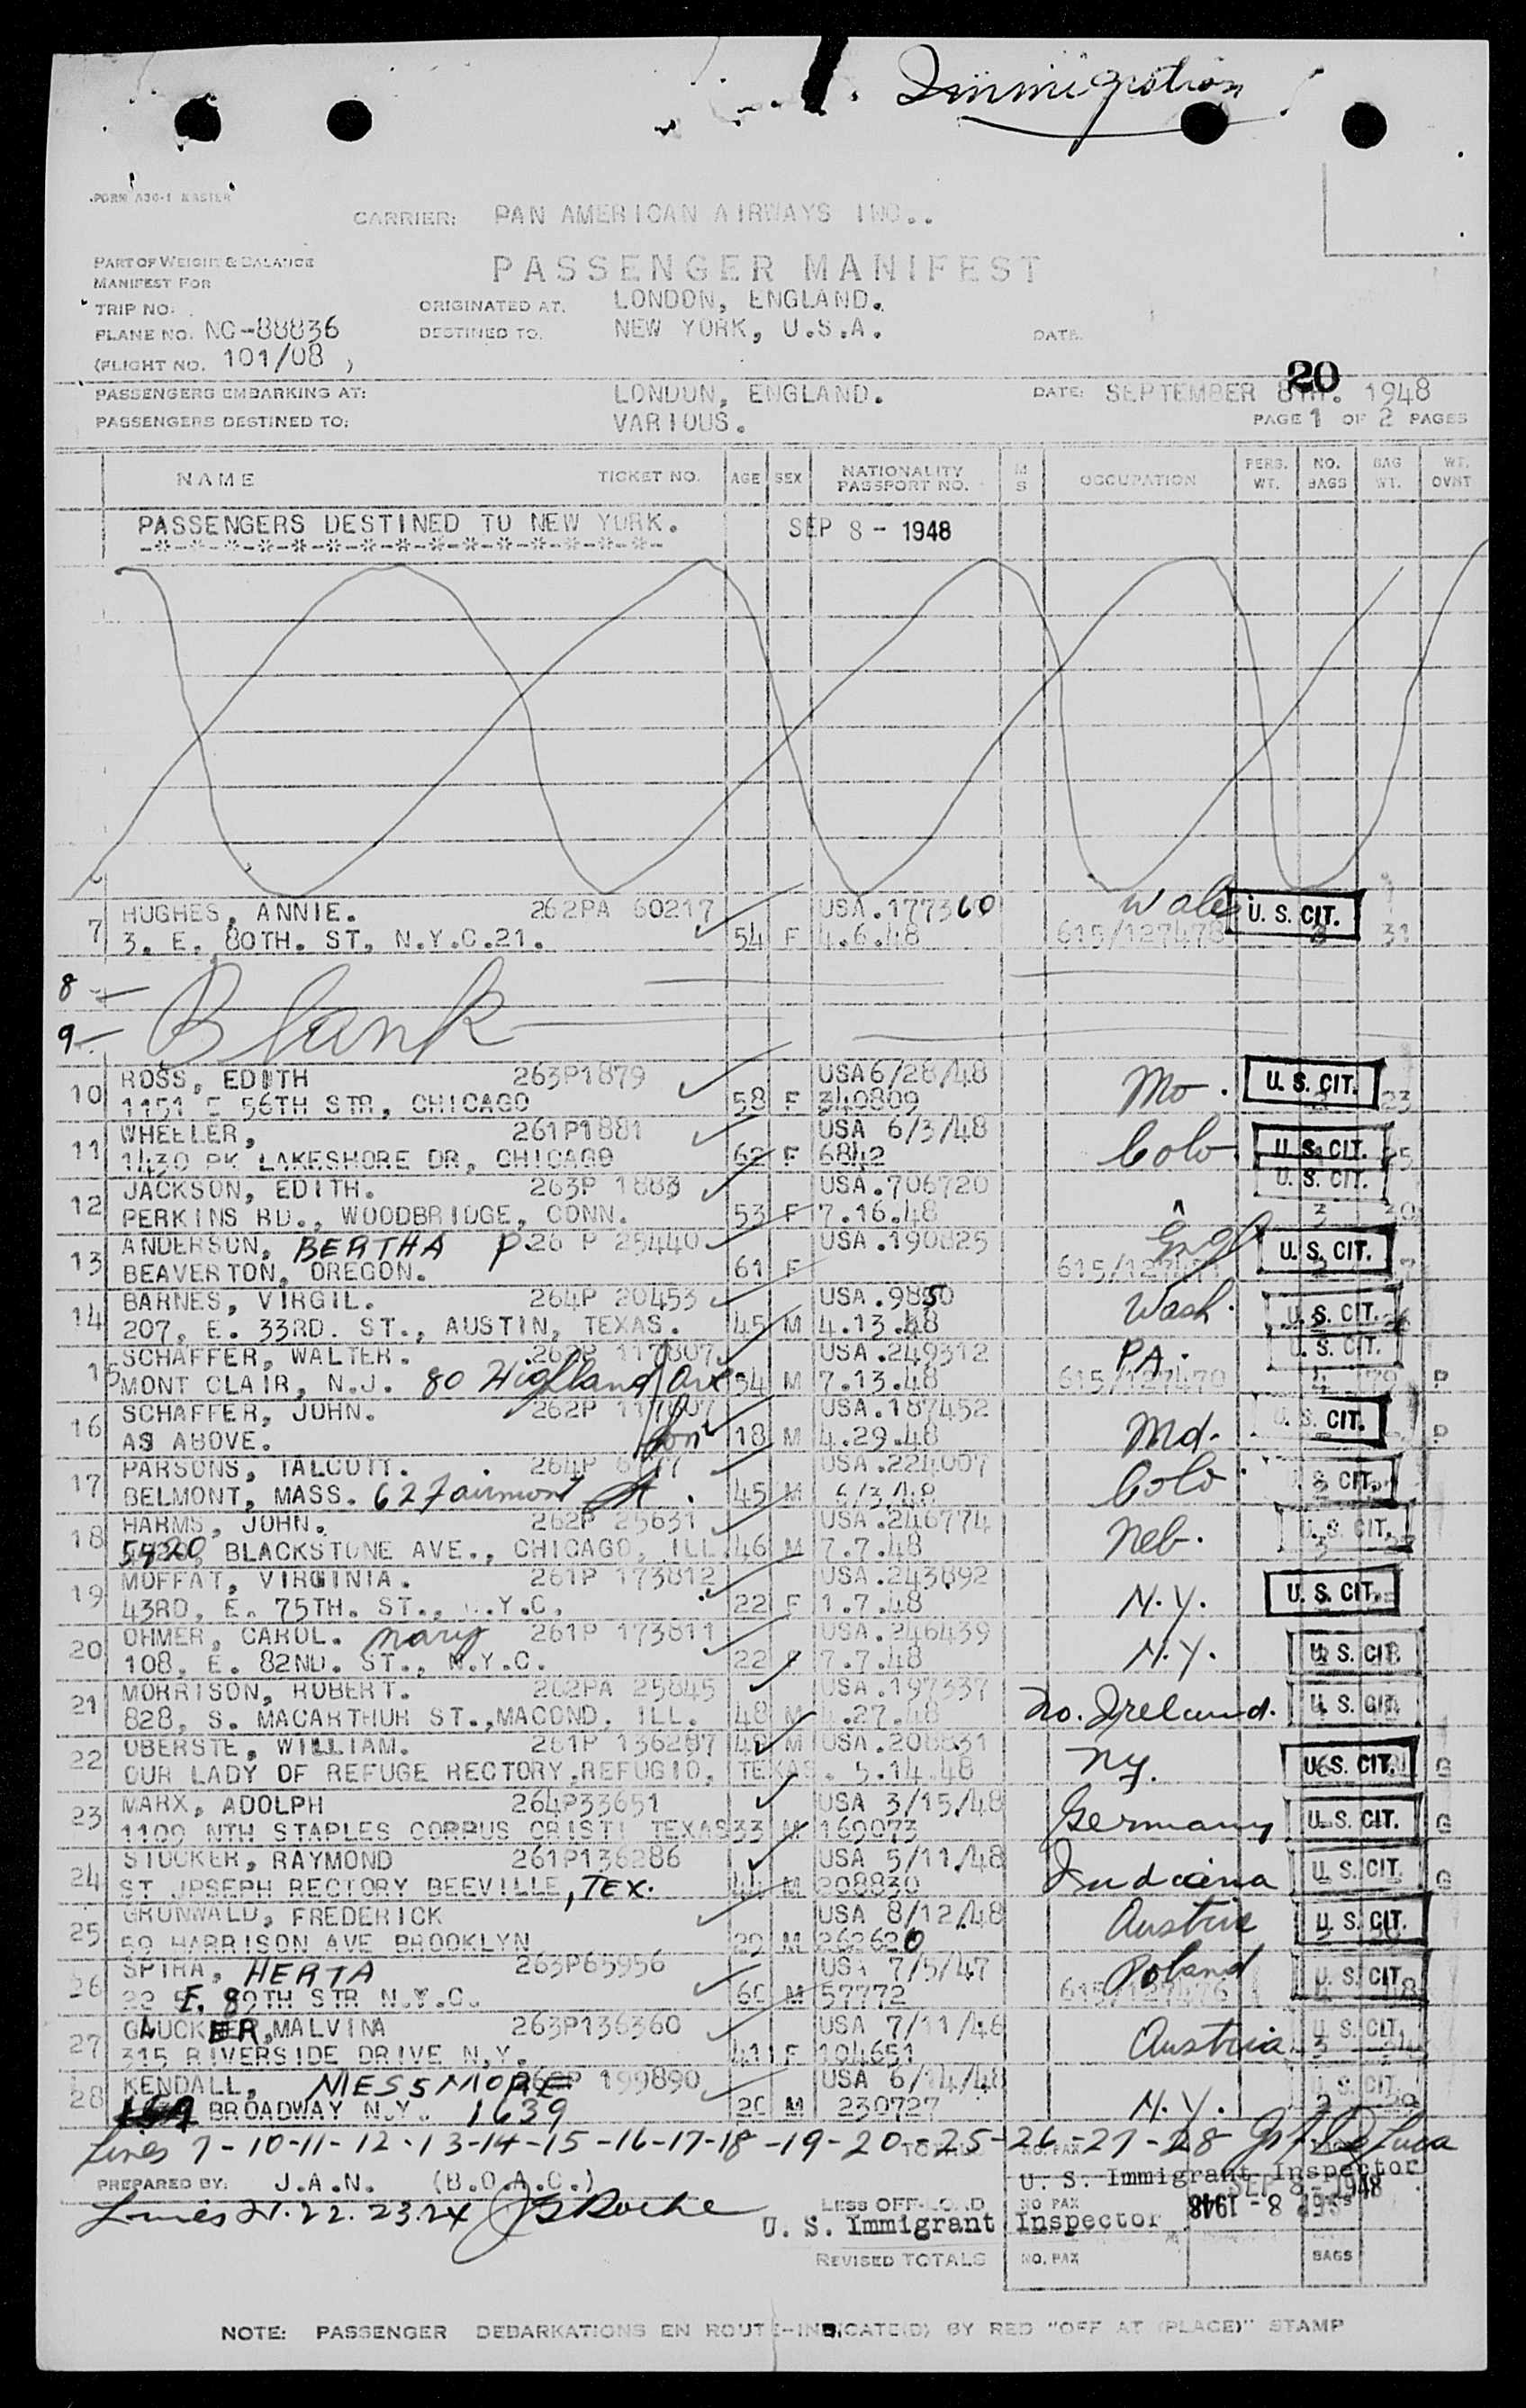 Immigration
FORM A30-1 MASTER
CARRIER: PAN AMERICAN AIRWAYS INC..
PART OF WEIGHT & BALANCE
MANIFEST FOR
PASSENGER MANIFEST
TRIP NO. ORIGINATED AT. LONDON, ENGLAND.
PLANE NO. NC-88836 DESTINED TO. NEW YORK, U.S.A. DATE.
(FLIGHT NO. 101/08 )
PASSENGERS EMBARKING AT: LONDON, ENGLAND. DATE: SEPTEMBER 8TH. 1948
20
PASSENGERS DESTINED TO: VARIOUS. PAGE 1 OF 2 PAGES
NAME TICKET NO. AGE SEX NATIONALITY PASSPORT NO. M S OCCUPATION PERS. WT. NO. BAGS BAG WT. WT. OVNT
PASSENGERS DESTINED TO NEW YORK. SEP 8 - 1948
-*-*-*-*-*-*-*-*-*-*-*-*-*-*-*-
7 HUGHES, ANNIE. 262PA 60217 USA.177360 Wales U. S. CIT.
3. E. 80TH. ST, N.Y.C.21. 54 F 4.6.48 615/127478 31
8
9 Blank
10 ROSS, EDITH 263P1879 USA 6/28/48 Mo. U. S. CIT.
1151 E 56TH STR, CHICAGO 58 F 340809 2 23
11 WHEELER, 261P1881 USA 6/3/48 Colo. U. S. CIT.
1430 PK LAKESHORE DR, CHICAGO 62 F 6842
12 JACKSON, EDITH. 263P 1883 USA.706720 U. S. CIT.
PERKINS RD., WOODBRIDGE, CONN. 53 F 7.16.48 3 30
13 ANDERSON, BERTHA P. 26 P 25440 USA.190825 Engl U. S. CIT.
BEAVERTON, OREGON. 61 F
14 BARNES, VIRGIL. 264P 20453 USA.9850 Wash. U. S. CIT.
207, E. 33RD. ST., AUSTIN, TEXAS. 45 M 4.13.48
15 SCHAFFER, WALTER. 262P 117807 USA.249312 PA. U. S. CIT.
MONT CLAIR, N.J. 80 Highland Ave 54 M 7.13.48 615/127479 P
16 SCHAFFER, JOHN. 262P 117807 USA.187452 Md. U. S. CIT.
AS ABOVE. Son 18 M 4.29.48 P
17 PARSONS, TALCOTT. 264P USA.224007 Colo. U. S. CIT.
BELMONT, MASS. 62 Fairmont St. 45 M 6/3/48
18 HARMS, JOHN. 262P 25631 USA.246774 Neb. U. S. CIT.
5420 BLACKSTONE AVE., CHICAGO, ILL. 46 M 7.7.48
19 MOFFAT, VIRGINIA. 261P 173812 USA.243892 N.Y. U. S. CIT.
43RD, E. 75TH. ST., N.Y.C. 22 F 1.7.48
20 OHMER, CAROL. Mary 261P 173811 USA.246439 N.Y. U. S. CIT
108, E. 82ND. ST., N.Y.C. 22 F 7.7.48
21 MORRISON, ROBERT. 262PA 25845 USA.197337 No. Ireland. U. S. CIT.
828, S. MACARTHUR ST.,MACOND. ILL. 48 M 27.48
22 OBERSTE, WILLIAM. 261P 136287 49 M USA.208831 NY. U. S. CIT.
OUR LADY OF REFUGE RECTORY,REFUGIO, TEXAS. 5.14.48 G
23 MARX, ADOLPH 264P33651 USA 3/15/48 Germany U. S. CIT.
1109 NTH STAPLES CORPUS CRISTI TEXAS 33 M 169073 G
24 STOCKER, RAYMOND 261P136286 USA 5/11/48 Indiana U. S. CIT.
ST JPSEPH RECTORY BEEVILLE, TEX. 44 M 208830 G
25 GRUNWALD, FREDERICK USA 8/12/48 Austria U. S. CIT.
59 HARRISON AVE BROOKLYN 29 M 262620
26 SPIRA, HERTA 263P65956 USA 7/5/47 Poland U. S. CIT.
22 E. 89TH STR N.Y.C. 60 M 57772 615/127476
27 GLUCKER, MALVINA 263P136360 USA 7/11/46 Austria U. S. CIT.
315 RIVERSIDE DRIVE N.Y. 41 F 104651
28 KENDALL, MESSMORE 199890 USA 6/14/48 N.Y. U. S. CIT.
BROADWAY N.Y. 1639 20 M 230727
Lines 7-10-11-12-13-14-15-16-17-18-19-20-25-26-27-28
PREPARED BY: J.A.N. (B.O.A.C.) U. S. Immigrant Inspector
SEP 8 - 1948
Lines 21.22.23.24 JS Roche LESS OFF-LOAD NO PAX SEP 8 - 1948
U. S. Immigrant Inspector
REVISED TOTALS NO. PAX BAGS
NOTE: PASSENGER DEBARKATIONS EN ROUTE-INDICATE(D) BY RED "OFF AT (PLACE)" STAMP